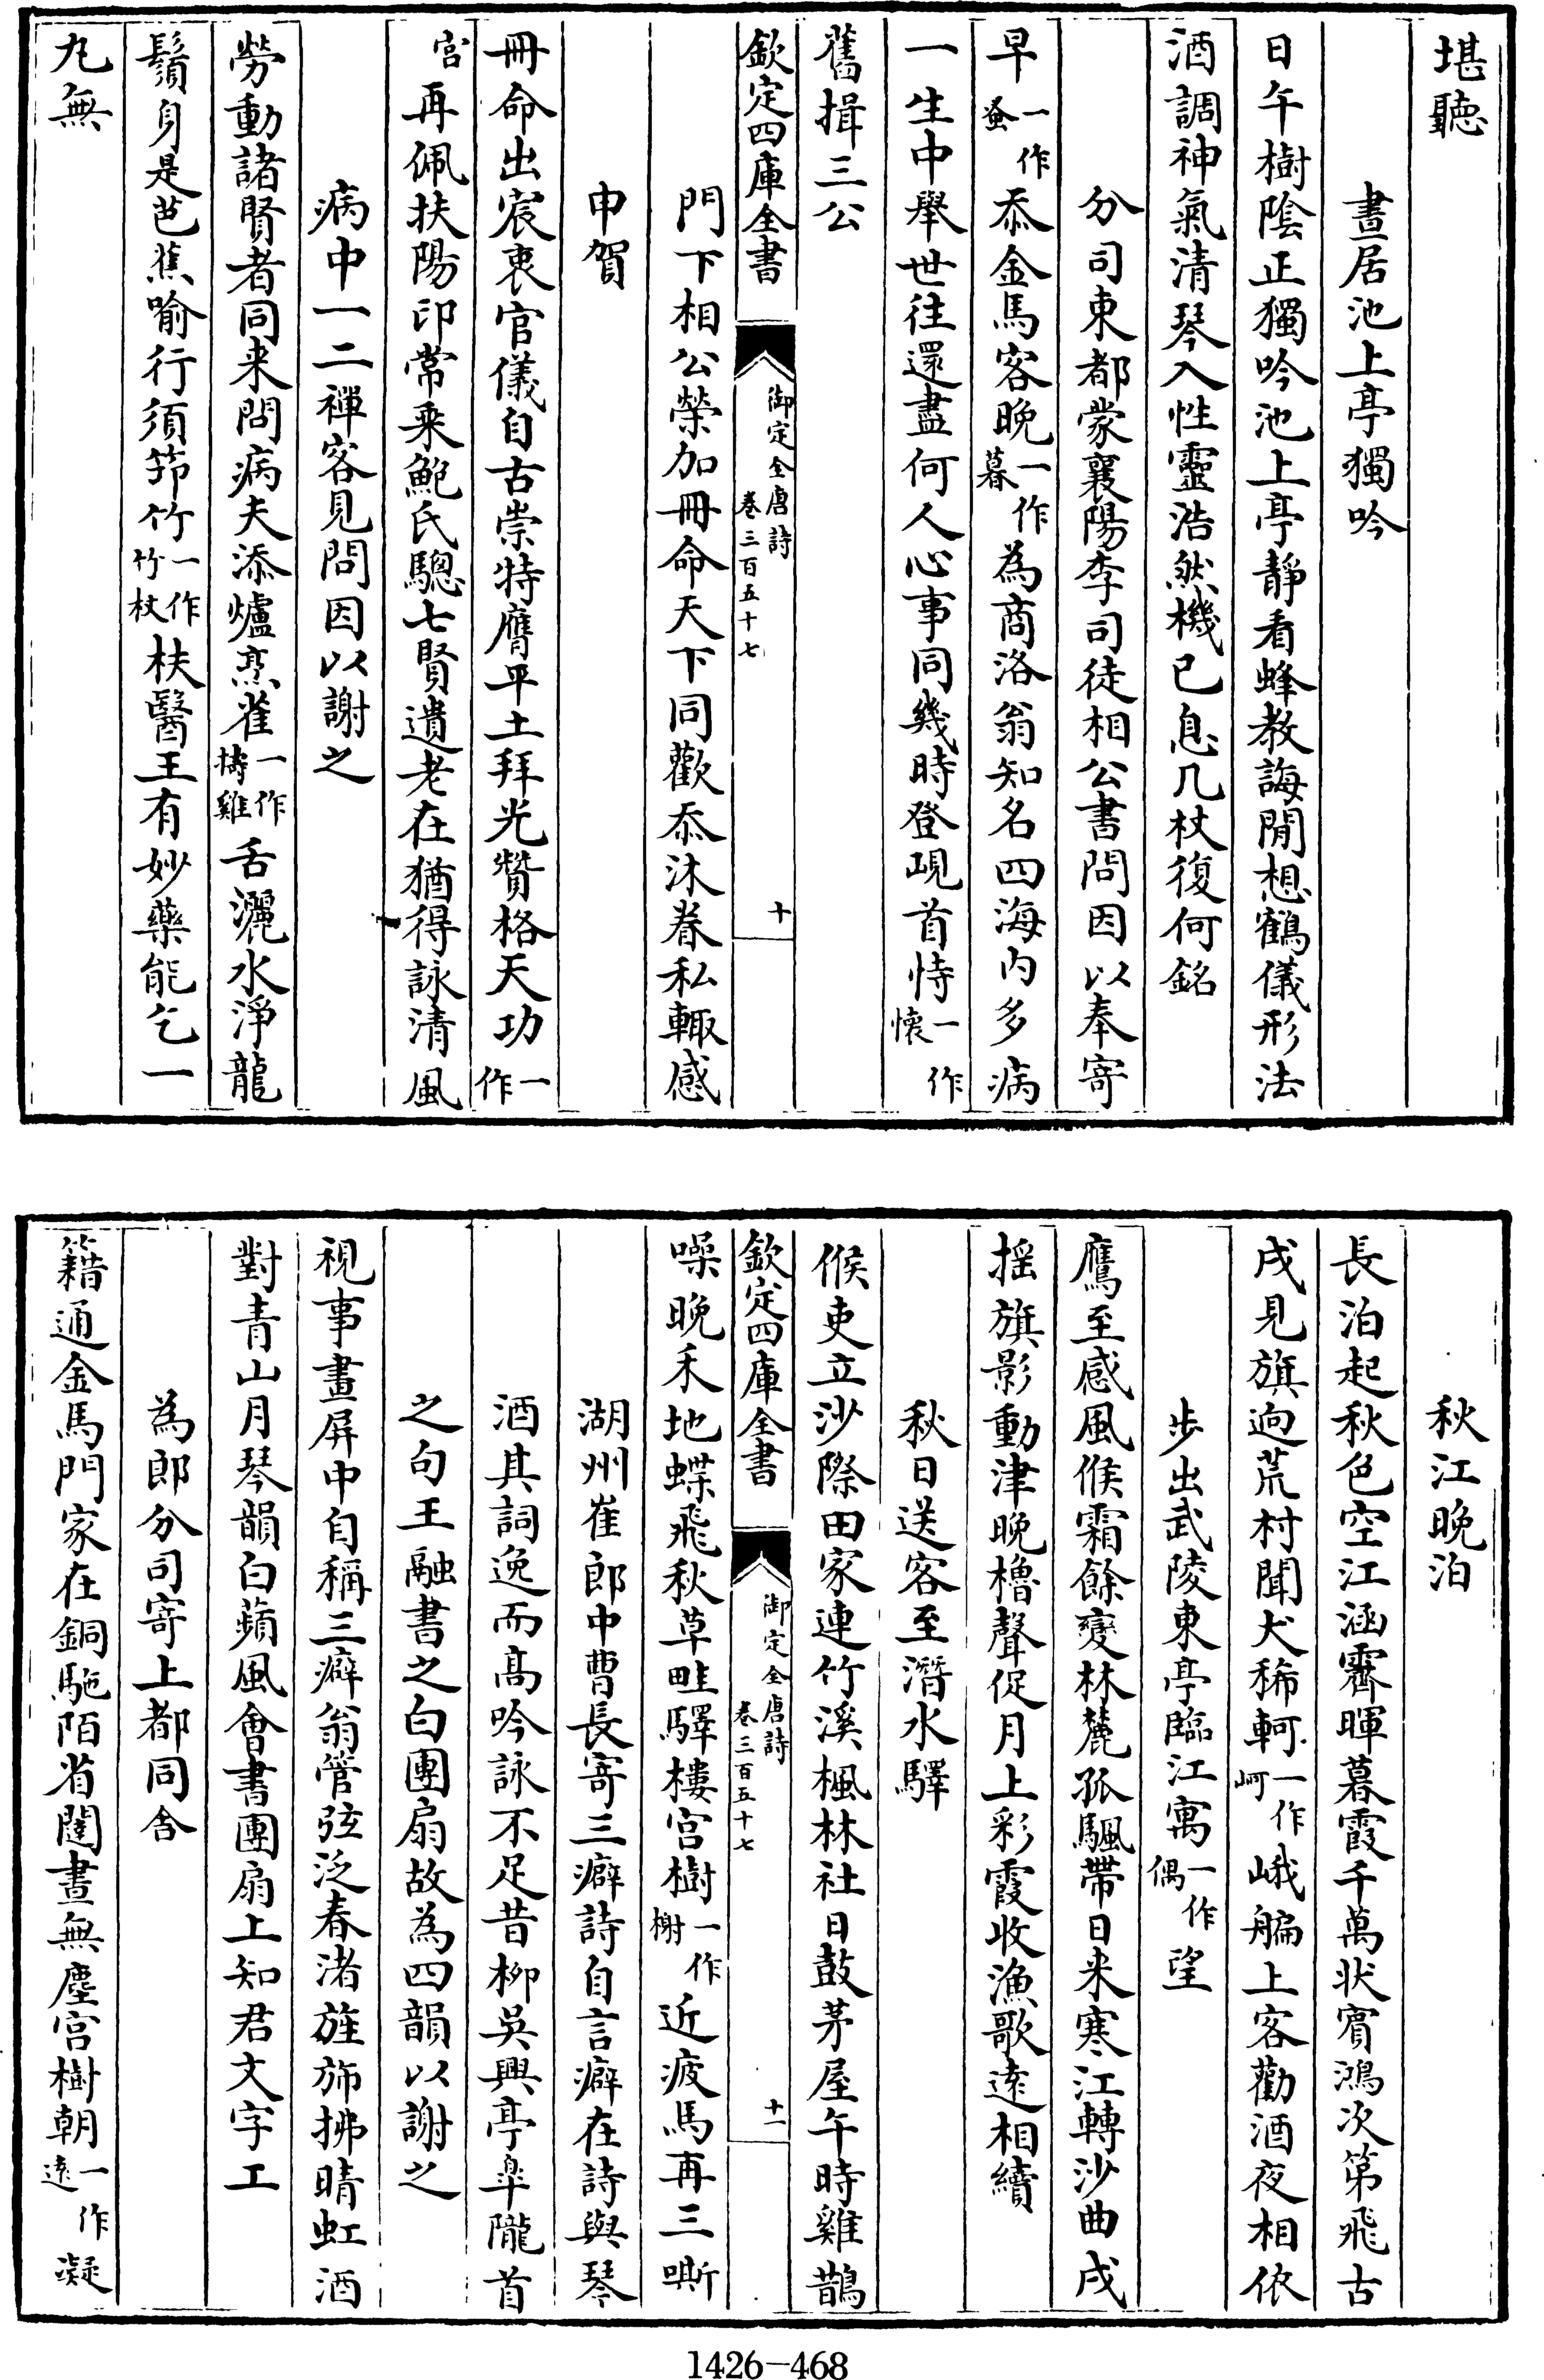 堪聽
晝居池上亭獨吟
日午樹陰正獨吟池上亭靜看蜂教誨閒想鶴儀形法
酒調神氣清琴入性靈浩然機已息几杖復何銘
分司東都蒙襄陽李司徒相公書問因以奉寄
早一作蚤忝金馬客晚一作暮為商洛翁知名四海内多病
一生中舉世往還盡何人心事同幾時登峴首恃一作懷
舊揖三公
欽定四庫全書 御定全唐詩 卷三百五十七 十
門下相公榮加冊命天下同歡忝沐眷私輙感
申賀
冊命出宸衷官儀自古崇特膺平土拜光贊格天功一作
宮再佩扶陽印常乘鮑氏驄七賢遺老在猶得詠清風
病中一二禪客見問因以謝之
勞動諸賢者同来問病夫添爐烹雀一作擣雞舌灑水淨龍
鬚身是芭蕉喻行須筇竹一作竹杖扶醫王有妙藥能乞一
丸無
秋江晚泊
長泊起秋色空江涵霽暉暮霞千萬状賓鴻次第飛古
戍見旗迥荒村聞犬稀軻一作峨艑上客勸酒夜相依
步出武陵東亭臨江寓一作偶望
鷹至感風候霜餘變林麓孤颿帶日来寒江轉沙曲戍
摇旗影動津晚櫓聲促月上彩霞收漁歌遠相續
秋日送客至潛水驛
候吏立沙際田家連竹溪楓林社日鼓茅屋午時雞鵲
噪晚禾地蝶飛秋草畦驛樓宫樹一作榭近疲馬再三嘶
欽定四庫全書 御定全唐詩 卷三百五十七 十一
湖州崔郎中曹長寄三癖詩自言癖在詩與琴
酒其詞逸而髙吟詠不足昔栁吳興亭臯隴首
之句王融書之白團扇故為四韻以謝之
視事畫屏中自稱三癖翁管弦泛春渚旌斾拂晴虹酒
對青山月琴韻白蘋風會書團扇上知君文字工
為郎分司寄上都同舍
籍通金馬門家在銅駞陌省闥晝無塵宫樹朝一作遠凝
1426-468